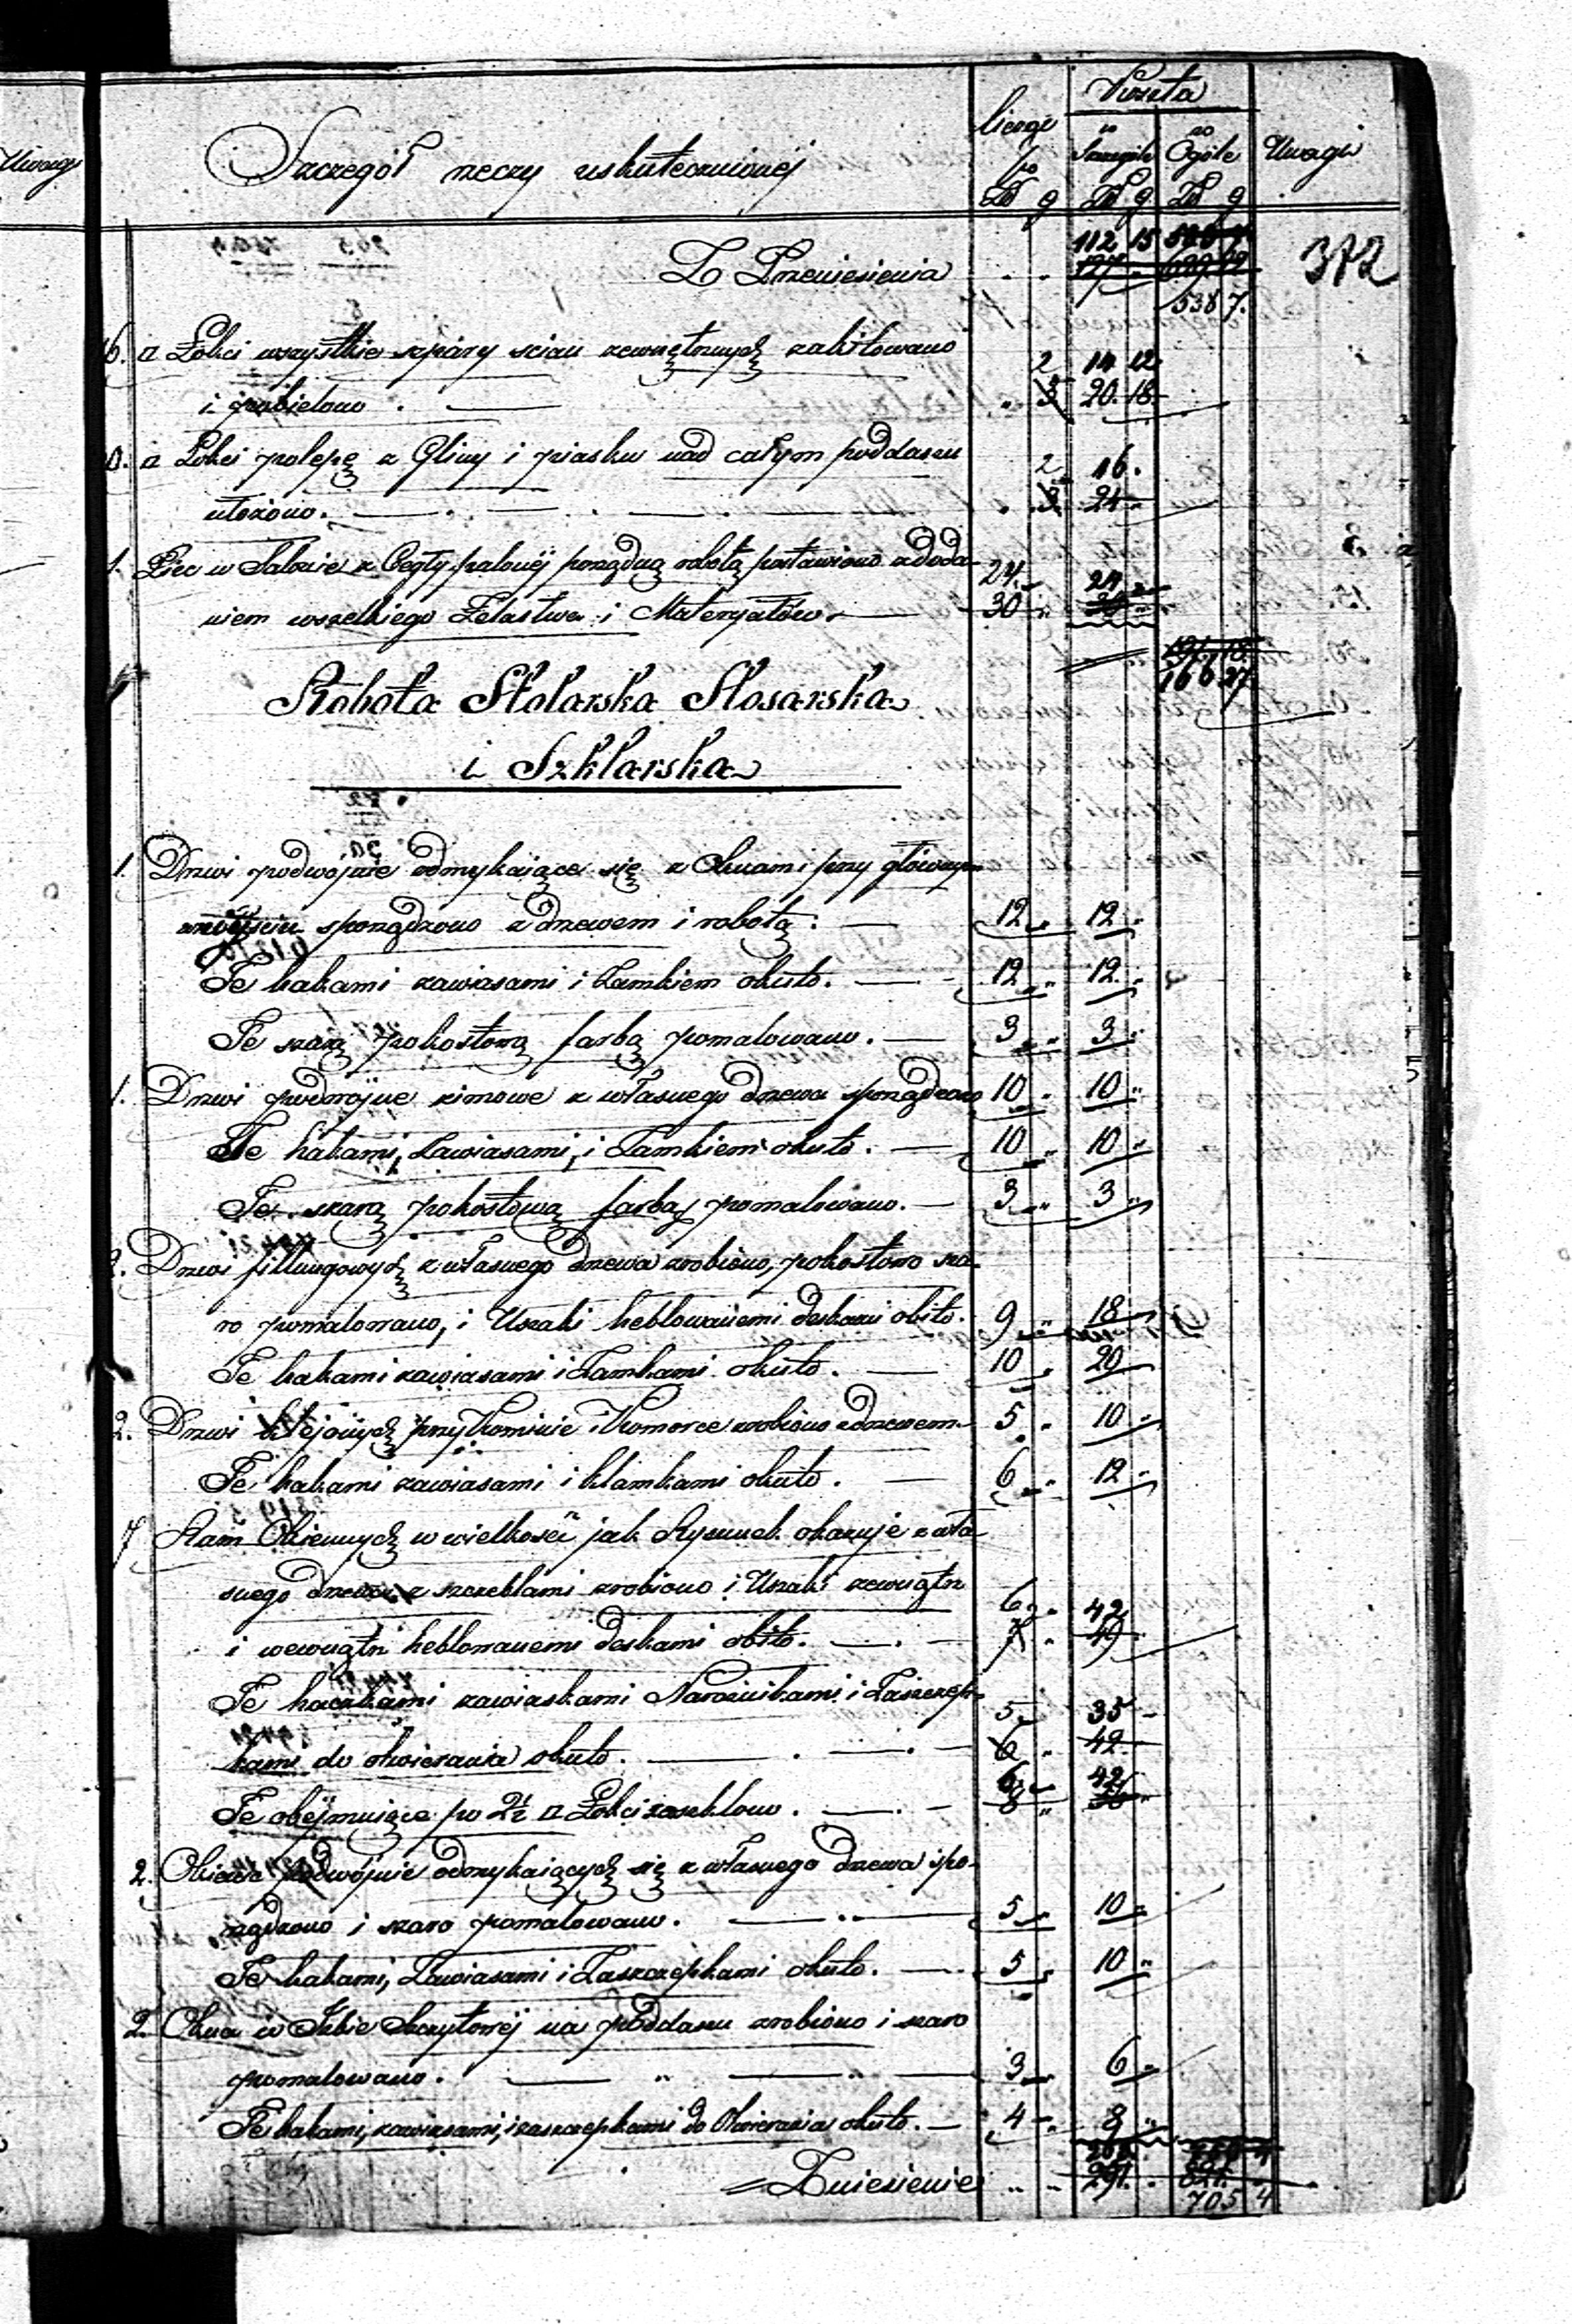 Uwagi
Szczegół rzeczy uskutecznionéj
liczge po Zł g
Kwota
w Szczególe Zł g
w Ogóle Zł g
Uwagi
Z Przeniesienia " " 112 15
538 7.
372
□ Łokci wszystkie szpary scian zewnętrznych zakitowano 2 14 12
i pobielono . — " 3 20.18.
□ Łokci polepę z Gliny i piasku nad całym poddaszu 2 16.
ułożono. — . — . — . — " 3 24 "
1. Piec w Salonie z Cegły palonéj porządną robotą postawiono z doda- 24. 24
niem wszelkiego Żelastwa i Materyałów. — 30 " 30 "
191. 18.
166 27
Robota Stolarska Slosarska
i Szklarska
1. Drzwi podwójnie odmykaiące się z Oknami przy głównym
sporządzono z drzewem i robotą: — 12 " 12 "
Te hakami zawiasami i Zamkiem okuto. — 12 " 12 "
Te szarą pokostową farbą pomalowano. — 3 " 3 "
1. Drzwi podwójne zimowe z własnego drzewa sporządzono 10 " 10 "
Te hakami, Zawiasami, i Zamkiem okuto. — 10 " 10 "
Te szarą pokostową farbą pomalowano. — 3 " 3 "
2. Drzwi fillungowych z własnego drzewa zrobiono, pokostowo sza-
ro pomalowano, i Uszaki heblowanemi deskami obito. 9 " 18 "
Te hakami zawiasami i Zamkami okuto. — 10 " 20
2. Drzwi klejonych przy Kominie i Komorce zrobiono z drzewem. 5 " 10 "
Te hakami zawiasami i klamkami okuto. — 6 " 12 "
7 Ram Okiennych w wielkości jak Rysunek okazuje z wła-
snego drzewa z szczeblami zrobiono i Uszaki zewnątrz 6 " 42
i wewnątrz heblowanemi deskami obito. — . — 7 " 49
Te haczkami zawiaskami Narożnikami i Zaszczep- 5 " 35 "
kami do otwierania okuto. — . — . — 6 " 42
6 " 42
Te obéjmuiące po 2½ □ Łokci zaszklono. — . — 8 " 56 "
2. Okienic podwójnie odmykaiących się z własnego drzewa spo-
rządzono i szaro pomalowano. — " — 5 " 10 "
Te hakami, Zawiasami i Zaszczepkami okuto. — 5 " 10 "
2. Okna w Izbie Szczytowéj na poddaszu zrobiono i szaro
pomalowano. — " — " — 3 " 6 "
Te hakami, zawiasami, i zaszczepkami do Otwierania okuto. — 4 " 8 "
Zniesienie " " 291. "
705 4